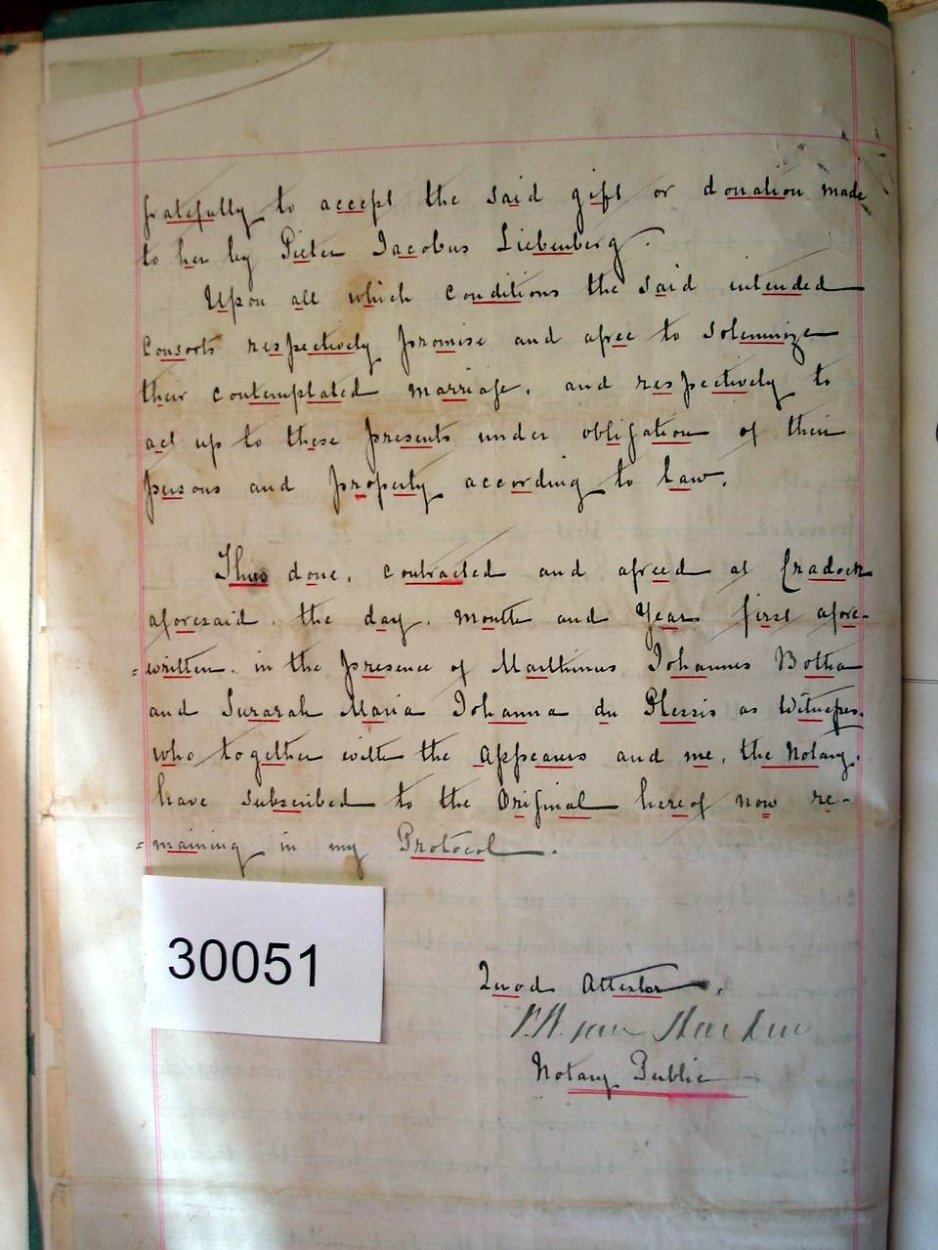 gratefully to accept the said gift or donation made
to her by Pieter Jacobus Liebenberg.
Upon all which conditions the said intended
Consorts respectively promise and agree to solemnize
their contemplated marriage, and respectively to
act up to these presents under obligation of their
persons and property according to law.
Thus done, contracted and agreed at Cradock
aforesaid, the day, month and Year first afore-
=written, in the presence of Marthinus Johannes Botha
and Surarah Maria Johanna du Plessis as Witnesses,
who together with the Appearers and me, the Notary,
have subscribed to the Original hereof now re-
=maining in my Protocol.
30051
Quod Attestor,
van
Notary Public